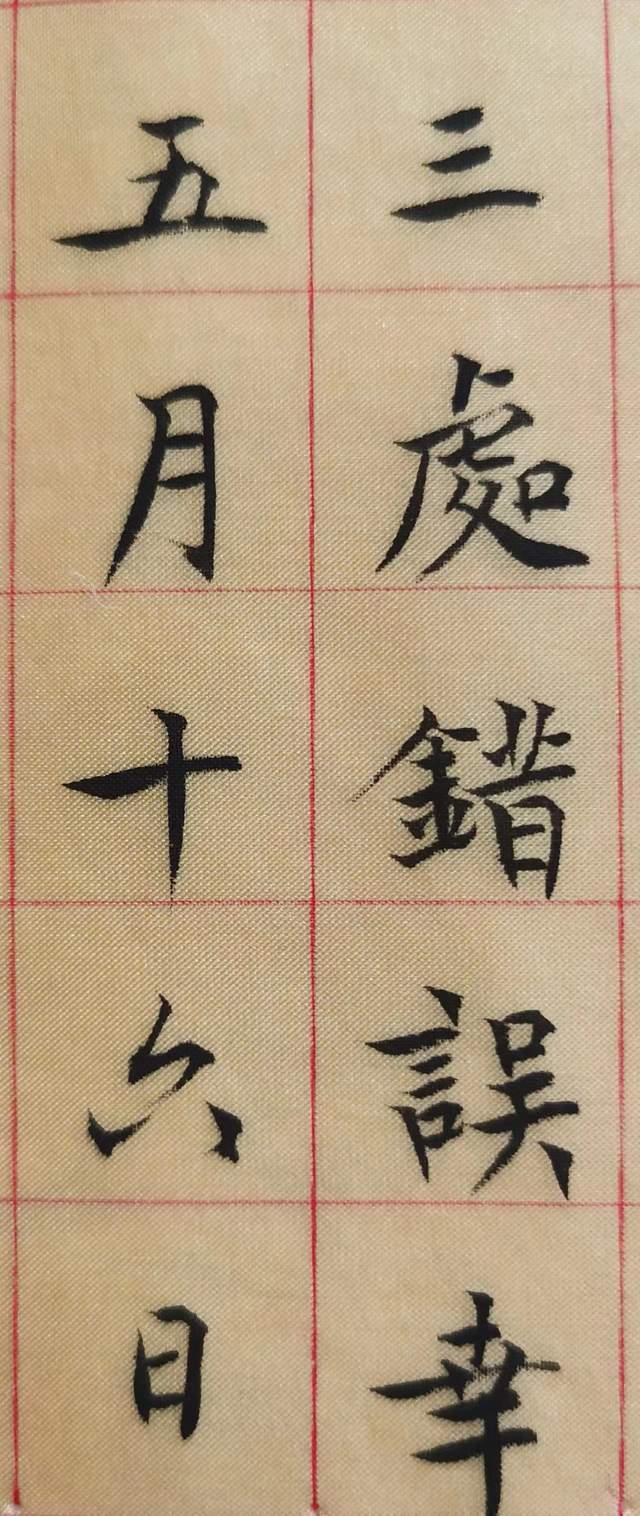 三處錯誤幸
五月十六日